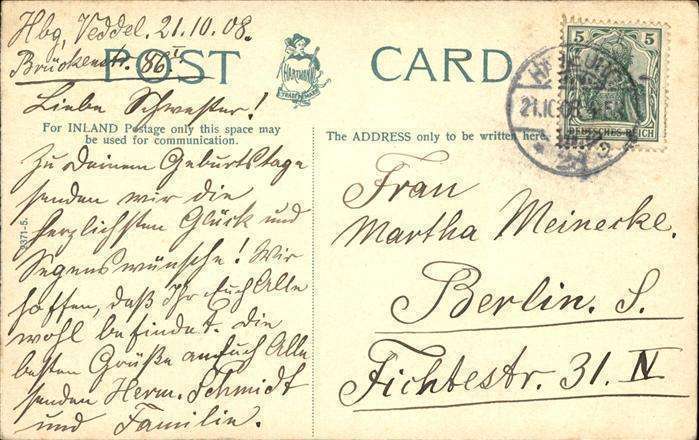 Hbg, Veddel. 21.10.08.
Brückenstr. 86 I
POST CARD
HARTMANN
TRADE MARK
Liebe Schwester!
For INLAND Postage only this space may
be used for communication.
The ADDRESS only to be written here.
Zu Deinem Geburtstage
senden wir die
herzlichsten Glück und
Segenswünsche! Wir
hoffen, daß Ihr Euch Alle
wohl befindet. Die
besten Grüße an Euch Alle
senden Herm. Schmidt
und Familie.
2371-5.
5 5
DEUTSCHES REICH
21.10.08
Frau
Martha Meinecke.
Berlin. S.
Fichtestr. 31. IV